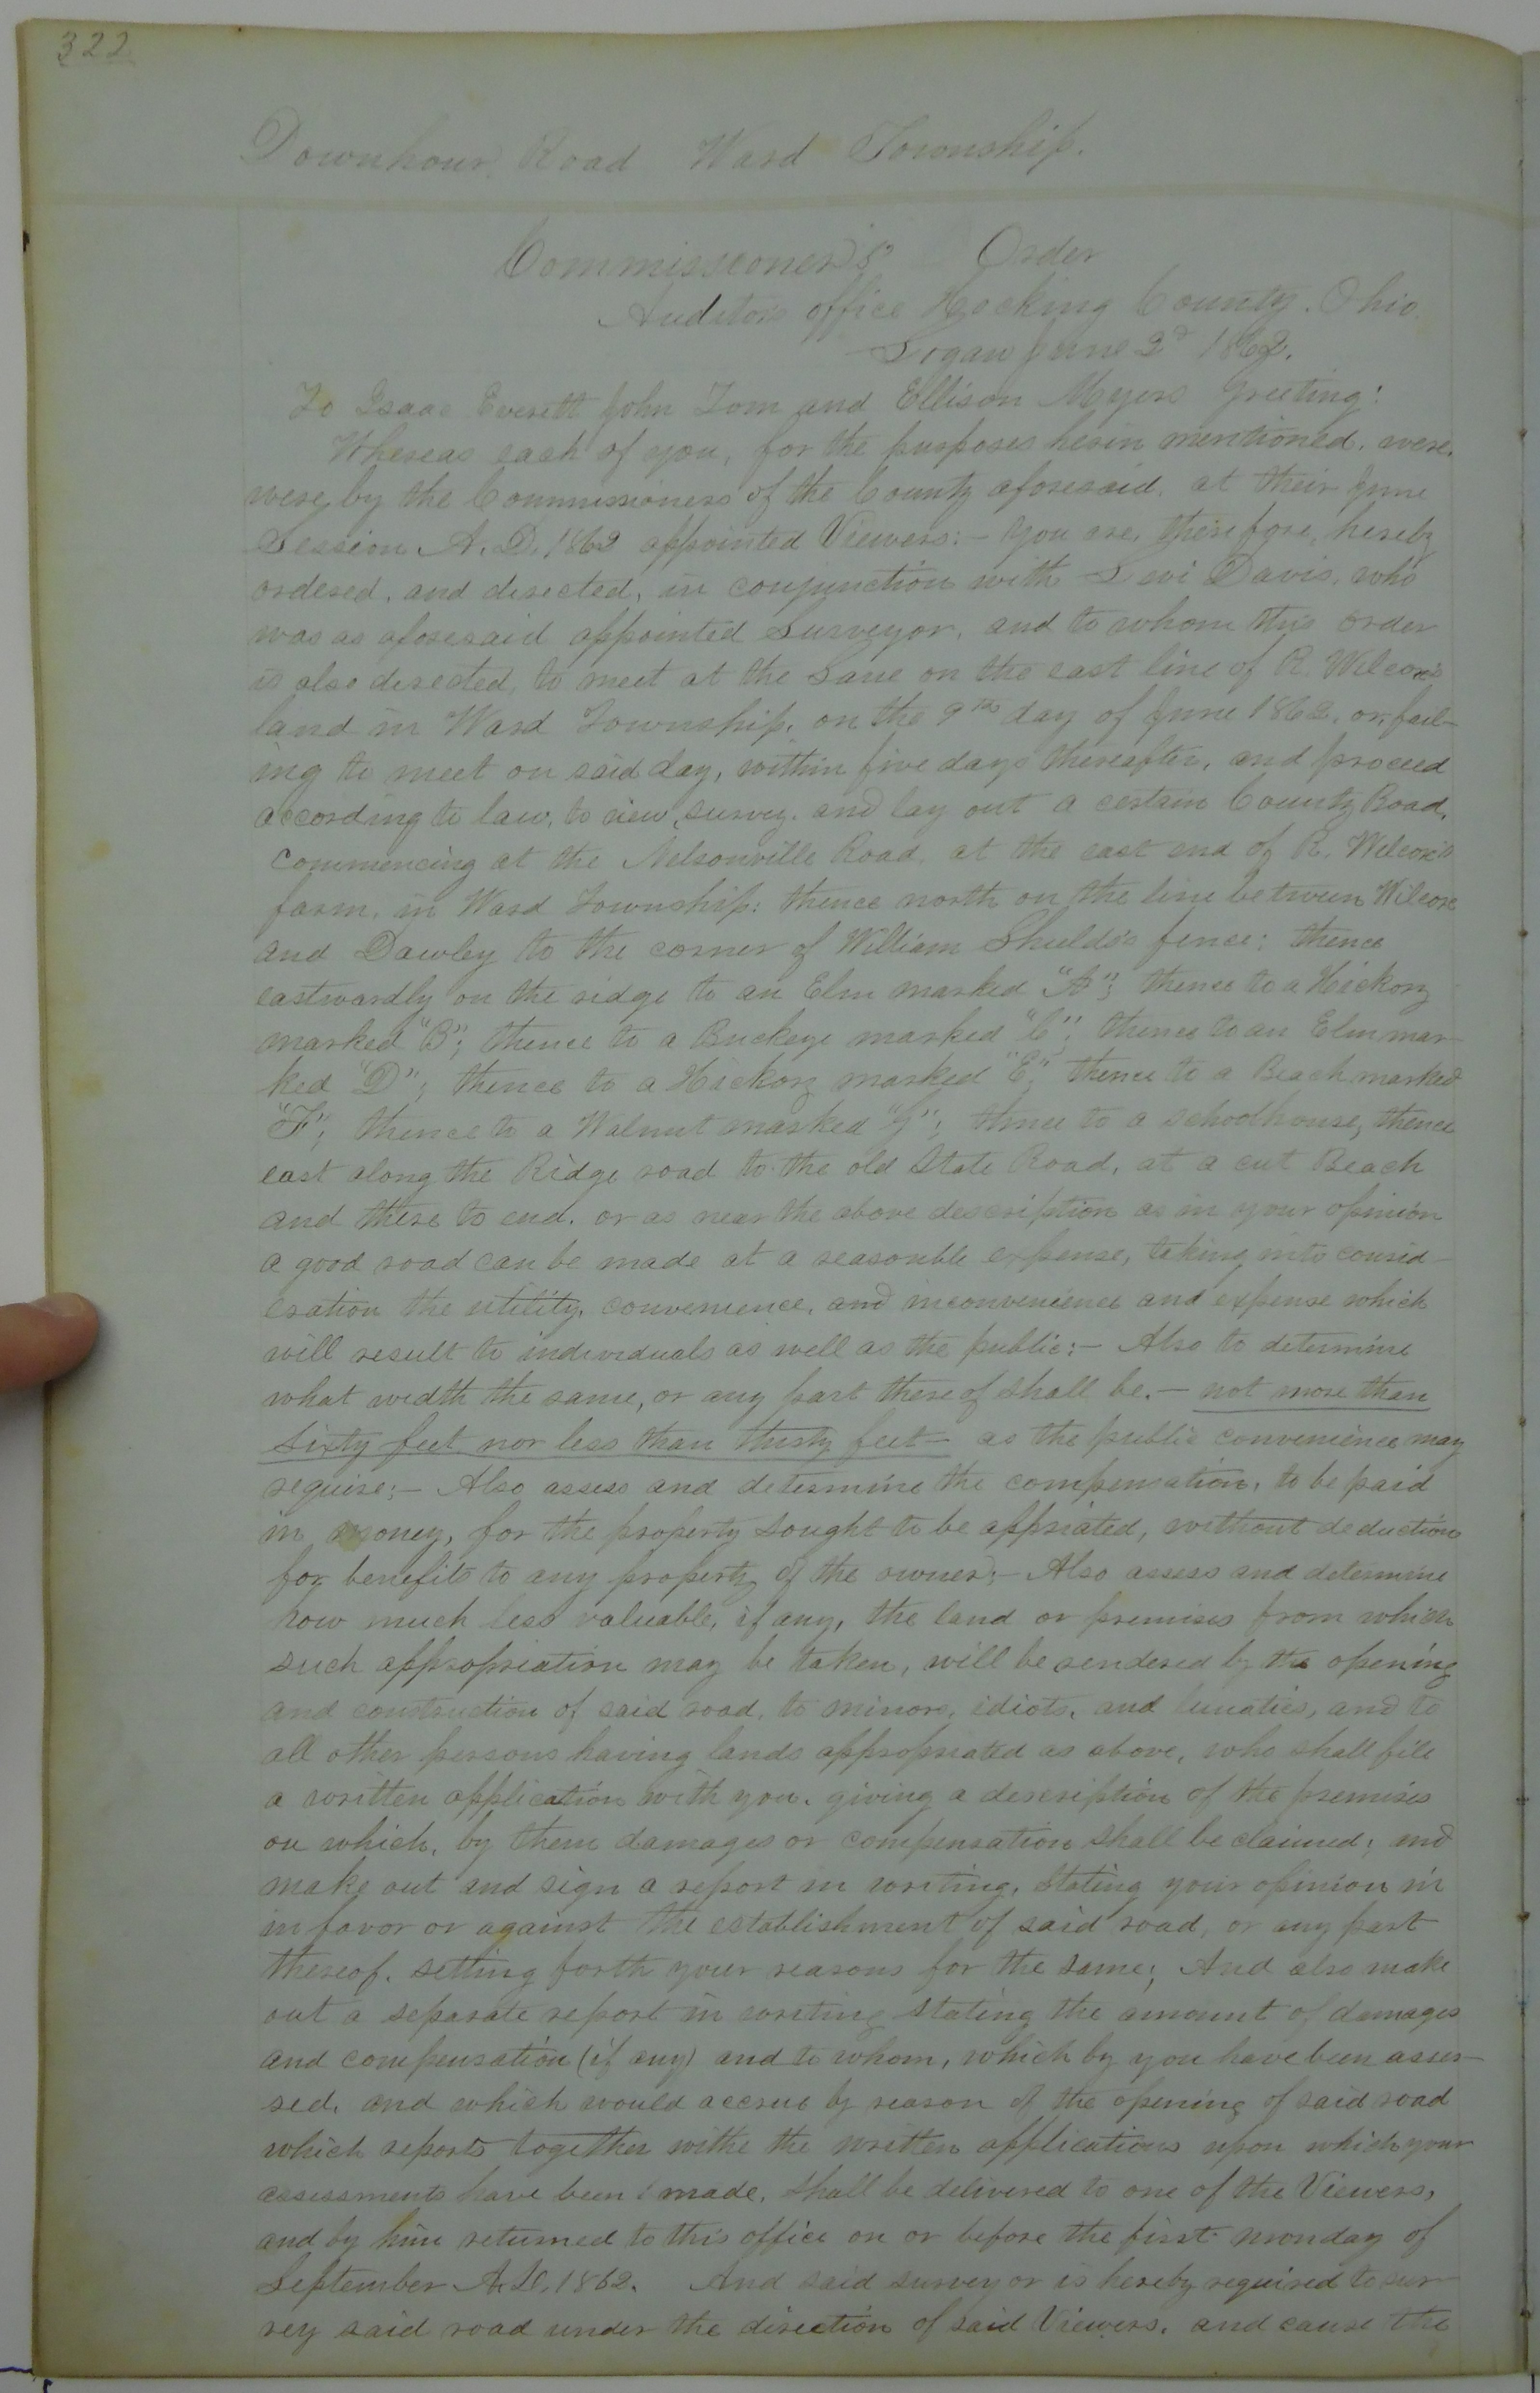 322
Downhour Road Ward Township.
Commissioner's Order
Auditors office Hocking County. Ohio
Logan June 2d 1862.
To Isaac Everett John Tom and Ellison Myers Greeting:
Whereas each of you, for the purposes herin mentioned, were,
were, by the Commissioners of the County aforesaid, at their June
Session, A. D. 1862 appointed Viewers:- You are, therefore, hereby
ordered, and directed, in conjunction with Levi Davis, who
was as aforesaid appointed Surveyor, and to whom this order
is also directed, to meet at the Lane on the east line of R. Wilcox's
land in Ward Township, on the 9th day of June 1862, or, fail-
ing to meet on said day, within five days thereafter, and proceed
according to law, to view, survey, and lay out a certain County Road,
commencing at the Nelsonville Road, at the east end of R. Wilcox's
farm, in Ward Township: thence north on the line between Wilcox
and Dawley to the corner of William Shields's fence; thence
eastwardly on the ridge to an Elm marked "A"; thence to a Hickory
marked "B"; thence to a Buckeye marked "C"; thence to an Elm mar-
ked "D"; thence to a Hickory marked "E"; thence to a Beach marked
"F"; thence to a Walnut marked "G"; thence to a schoolhouse, thence
east along the Ridge road to the old State Road, at a cut Beach
and there to end. or as near the above description as in your opinion
a good road can be made at a reasonble expense, taking into consid-
eration the utility, convenience, and inconvenience and expense which
will result to individuals as well as the public:- Also to determine
what width the same, or any part thereof shall be. - not more than
sixty feet nor less than thirty feet - as the public convenience may
require:- Also assess and determine the compensation, to be paid
in money, for the property sought to be appriated, without deduction
for benefits to any property of the owner;- Also assess and determine
how much less valuable, if any, the land or premises from which
such appropriation may be taken, will be rendered by the opening
and construction of said road, to minors, idiots, and lunatics, and to
all other persons having lands appropriated as above, who shall file
a written application with you, giving a description of the premises
on which, by them damages or compensation shall be claimed; and
make out and sign a report in writing, stating your opinion in
in favor or against the establishment of said road, or any part
thereof, setting forth your reasons for the same; And also make
out a separate report in writing stating the amount of damages
and compensation (if any) and to whom, which by you have been asses-
sed, and which would accrue by reason of the opening of said road
which reports together withe the written applications upon which your
assessments have been made, shall be delivered to one of the Viewers,
and by him returned to this office on or before the first monday of
September A. D. 1862. And said surveyor is hereby required to sur-
vey said road under the direction of said Viewers, and cause the